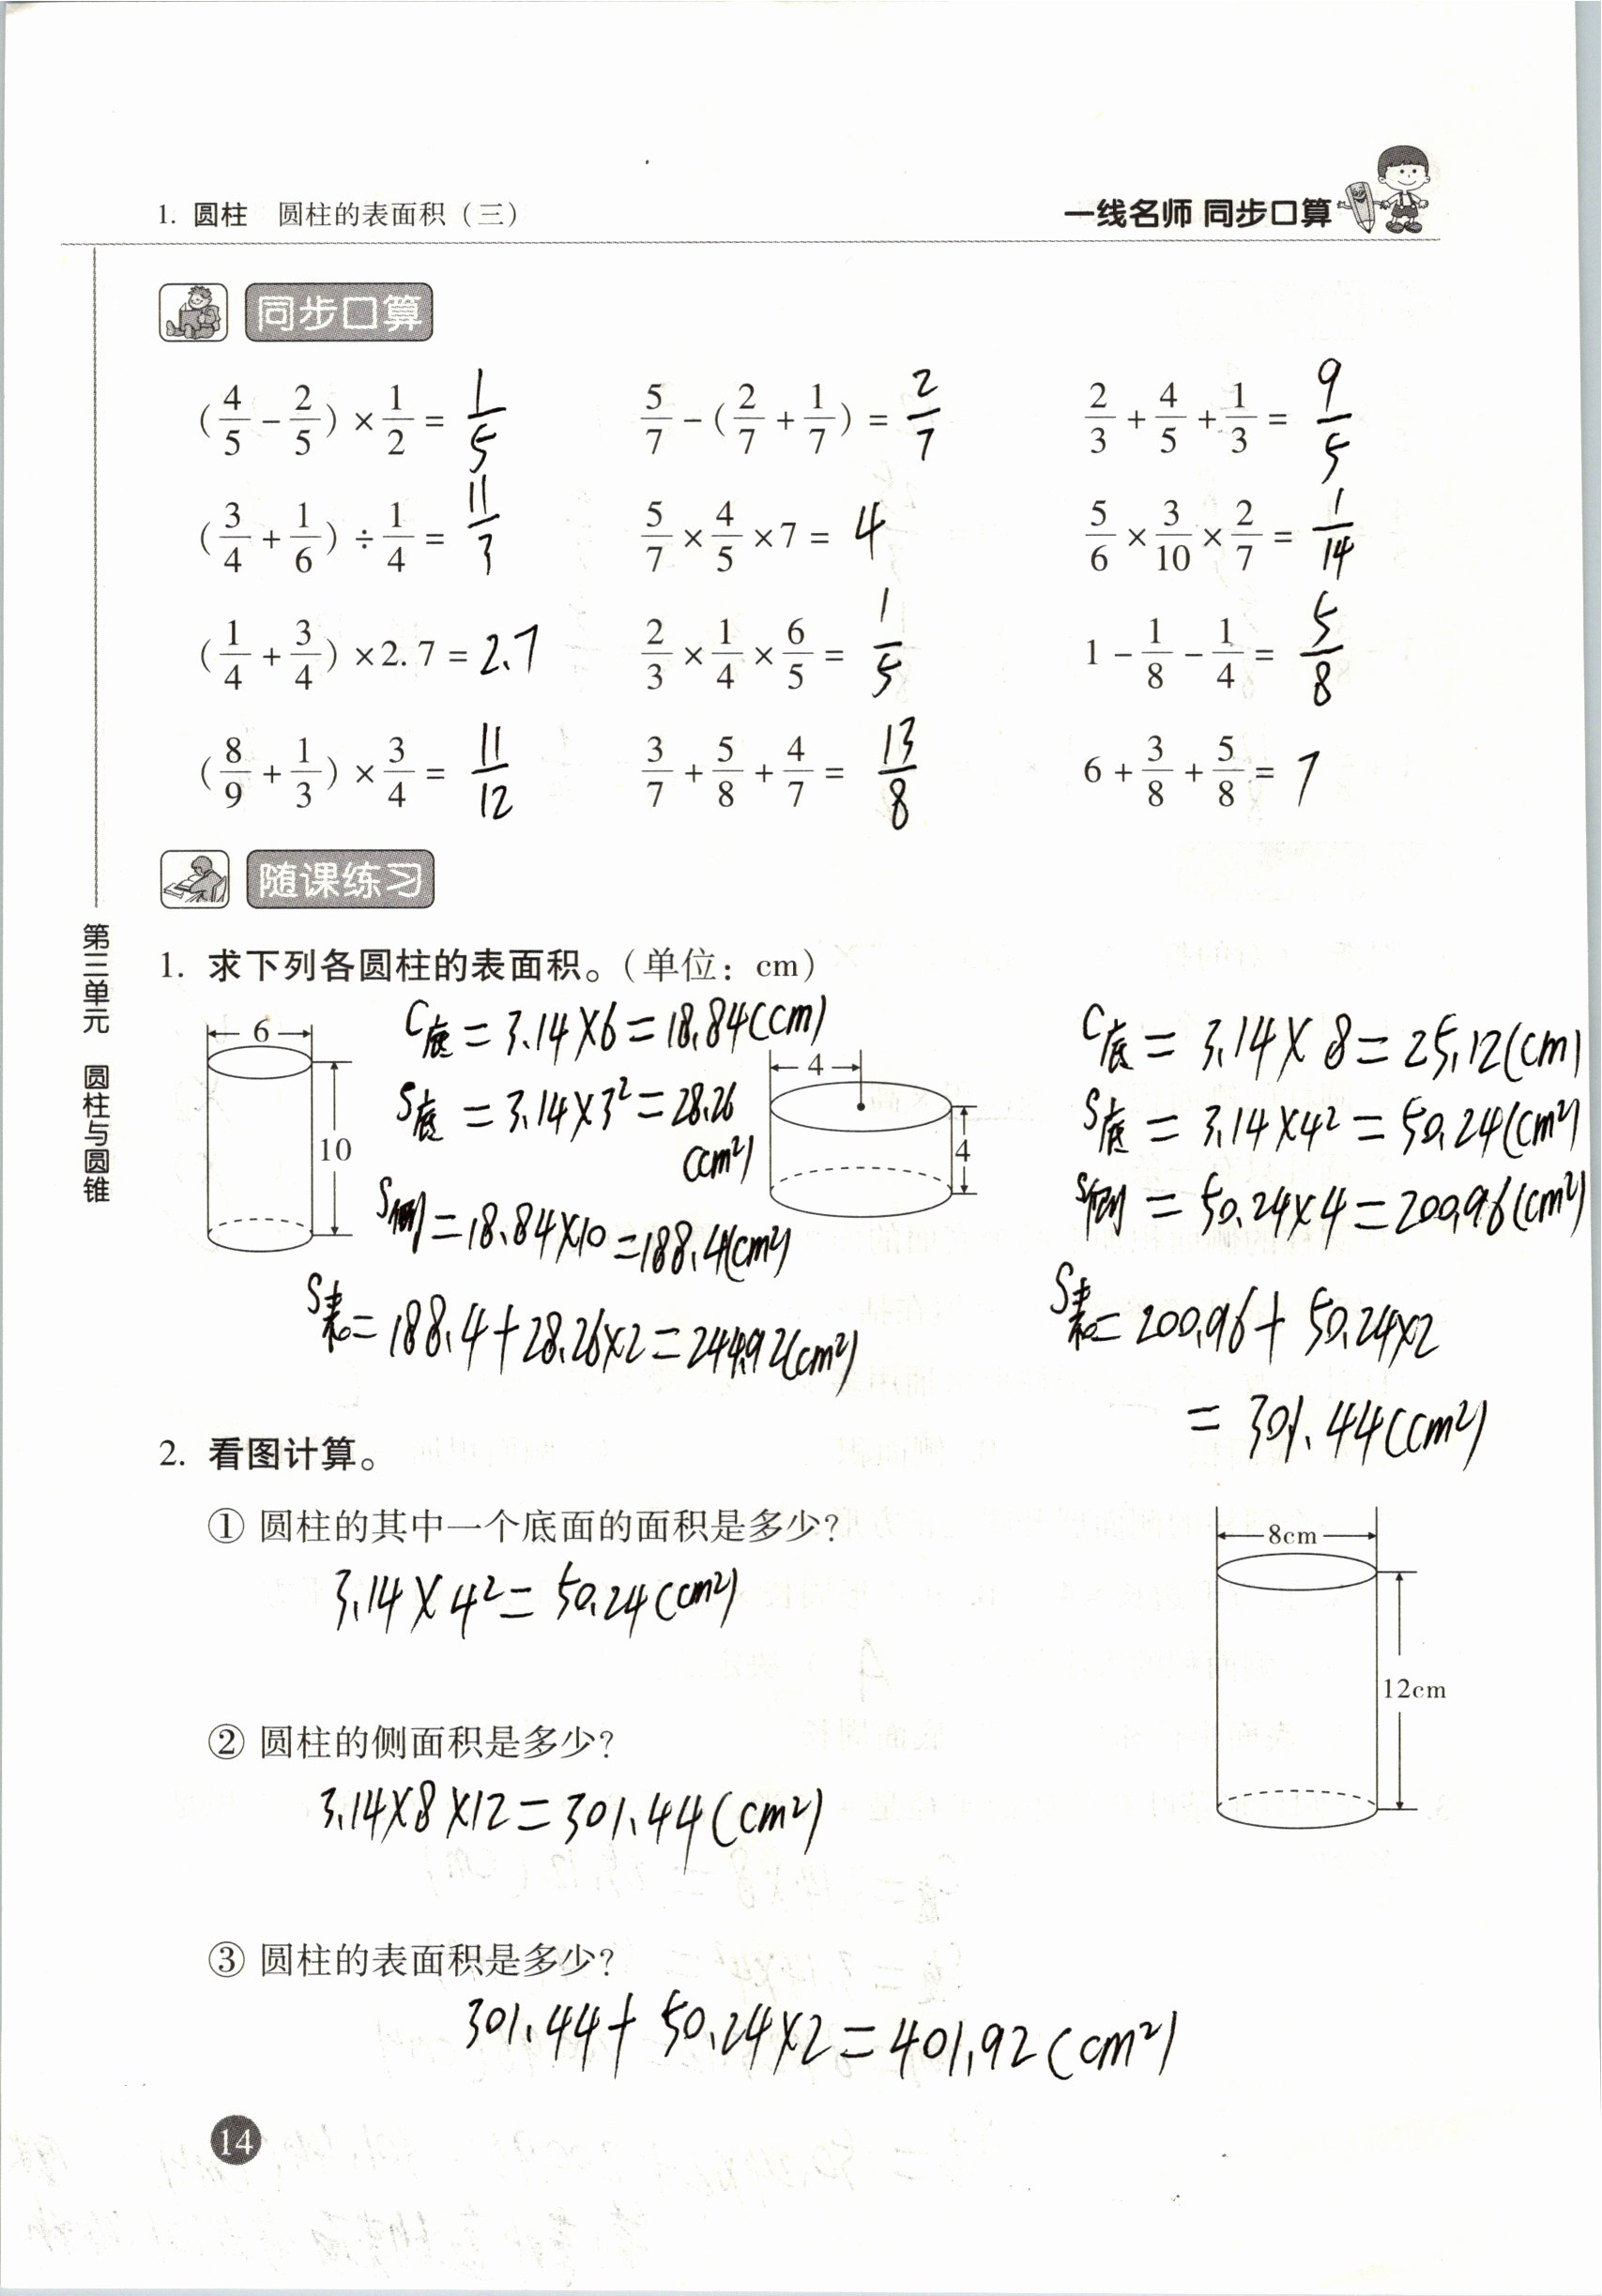 1. 圆柱 圆柱的表面积（三）
一线名师 同步口算
同步口算
(4/5 - 2/5) × 1/2 = 1/5
5/7 - (2/7 + 1/7) = 2/7
2/3 + 4/5 + 1/3 = 9/5
(3/4 + 1/6) ÷ 1/4 = 11/3
5/7 × 4/5 × 7 = 4
5/6 × 3/10 × 2/7 = 1/14
(1/4 + 3/4) × 2.7 = 2.7
2/3 × 1/4 × 6/5 = 1/5
1 - 1/8 - 1/4 = 5/8
(8/9 + 1/3) × 3/4 = 11/12
3/7 + 5/8 + 4/7 = 13/8
6 + 3/8 + 5/8 = 7
随课练习
第三单元 圆柱与圆锥
1. 求下列各圆柱的表面积。（单位：cm）
6
10
C底 = 3.14×6 = 18.84(cm)
S底 = 3.14×3² = 28.26
(cm²)
S侧 = 18.84×10 = 188.4(cm²)
S表 = 188.4+28.26×2 = 244.92(cm²)
4
4
C底 = 3.14×8 = 25.12(cm)
S底 = 3.14×4² = 50.24(cm²)
S侧 = 50.24×4 = 200.96(cm²)
S表 = 200.96+50.24×2
= 301.44(cm²)
2. 看图计算。
① 圆柱的其中一个底面的面积是多少？
3.14×4² = 50.24(cm²)
8cm
12cm
② 圆柱的侧面积是多少？
3.14×8×12 = 301.44(cm²)
③ 圆柱的表面积是多少？
301.44+50.24×2 = 401.92(cm²)
14